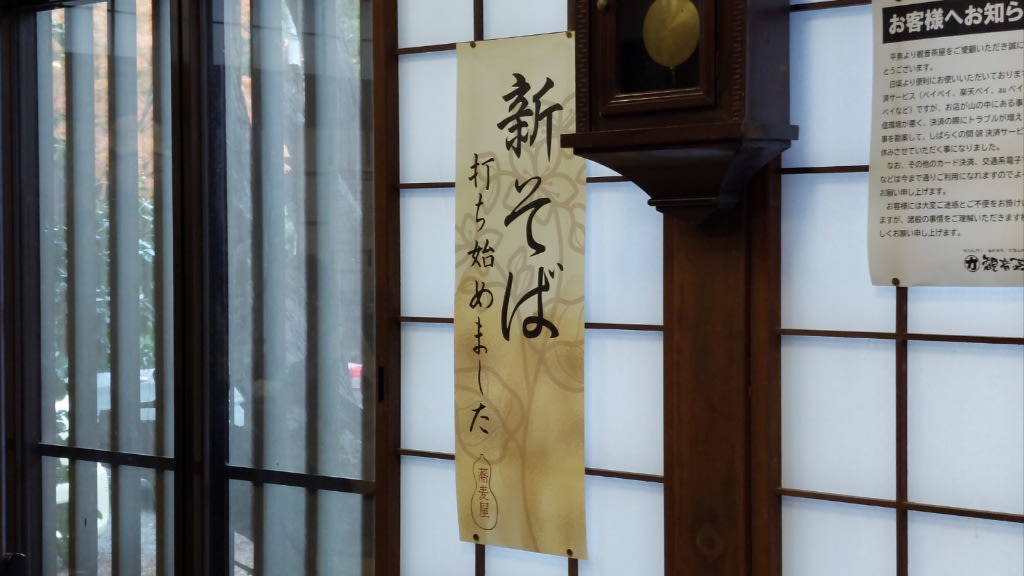 新そば
打ち始めました
蕎麦屋
お客様へお知ら
平素より観音茶屋をご愛顧いただき誠に
とうございます。
日頃より便利にお使いいただいておりま
済サービス（ペイペイ、楽天ペイ、auペイ
ペイなど）ですが、お店が山の中にある事
信環境が悪く、決済の際にトラブルが増え
事を勘案して、しばらくの間QR決済サービ
休みさせていただく事になりました。
なお、その他のカード決済、交通系電子
などは今まで通りご利用になれますのでよ
お願い申し上げます。
お客様には大変ご迷惑とご不便をお掛け
ますが、諸般の事情をご理解いただきます
しくお願い申し上げます。
観音茶